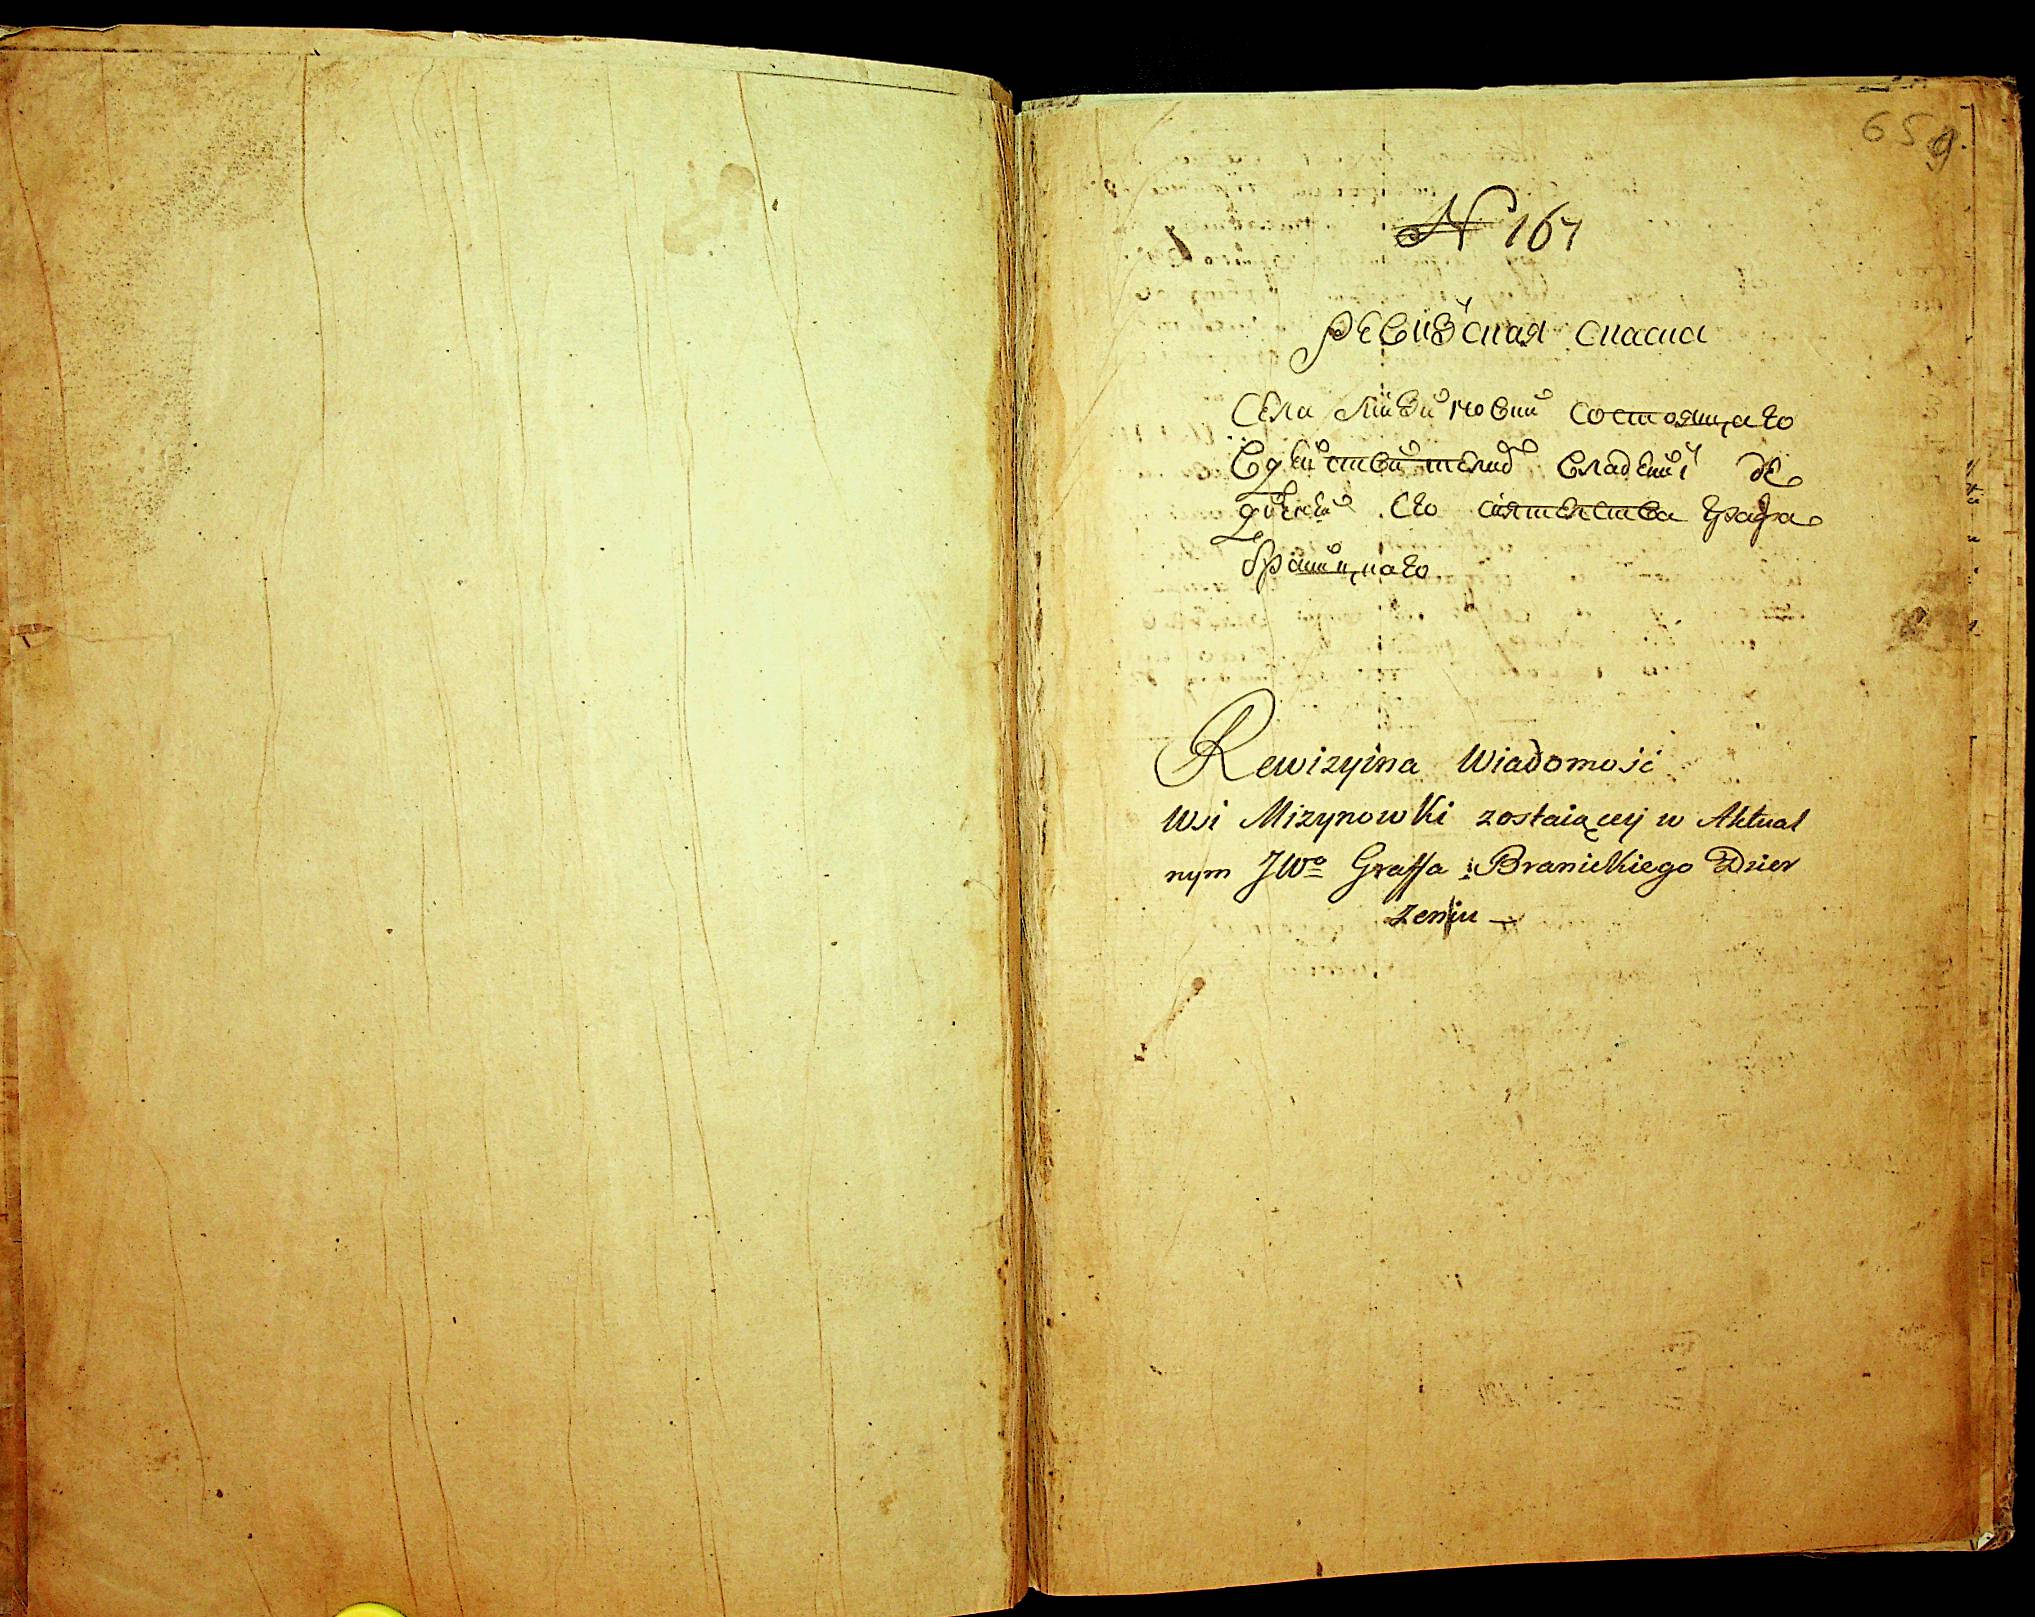 659.
N 167
Ревизская сказка
Села Мизиновки состоящаго
владении
его сиятелства Графа
Браницкаго
Rewizyina Wiadomość
Wsi Mizynowki zostaiącey w Aktual
nym JWo Graffa Branickiego Dzier
żeniu